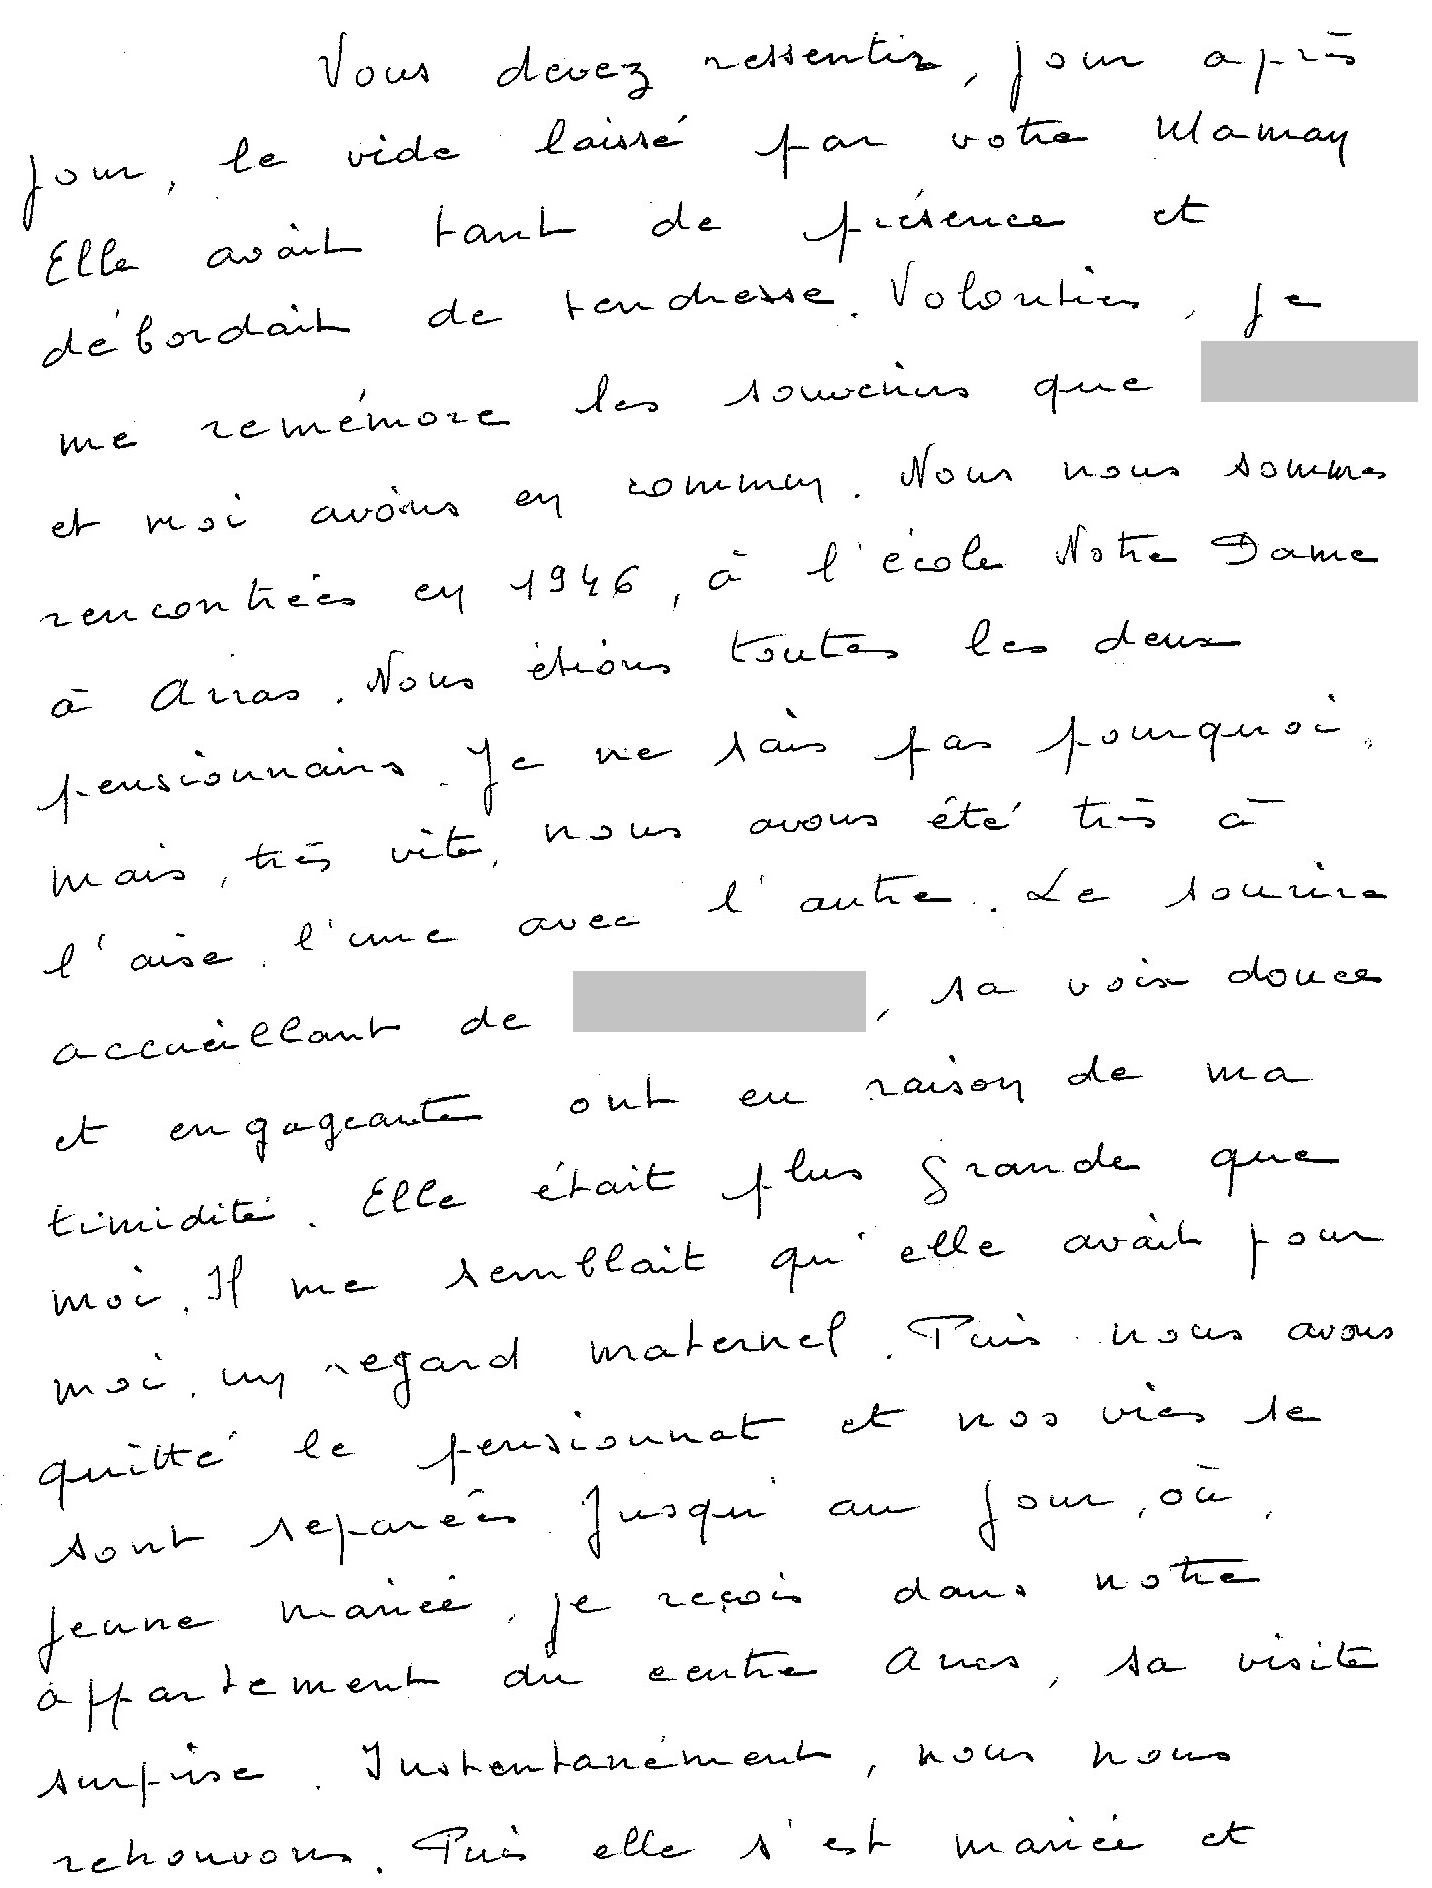 Vous devez ressentir, jour après
jour, le vide laissé par votre Maman
Elle avait tant de présence et
débordait de tendresse. Volontiers, je
me remémore les souvenirs que
et moi avons en commun. Nous nous sommes
rencontrées en 1946, à l'école Notre Dame
à Arras. Nous étions toutes les deux
pensionnaires. Je ne sais pas pourquoi,
mais, très vite, nous avons été très à
l'aise, l'une avec l'autre. Le sourire
accueillant de , sa voix douce
et engageante ont eu raison de ma
timidité. Elle était plus grande que
moi. Il me semblait qu'elle avait pour
moi, un regard maternel. Puis nous avons
quitté le pensionnat et nos vies se
sont séparées. Jusqu'au jour, où,
jeune mariée, je reçois dans notre
appartement du centre Arras, sa visite
surprise. Instentanément, nous nous
retrouvons. Puis elle s'est mariée et